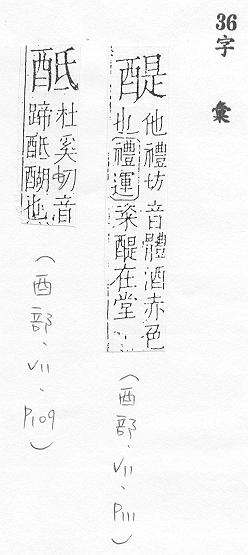 36字彙
醍
他禮切音體酒赤色
也禮運粢醍在堂
(酉部.VII.P111)
酼
杜奚切音
蹄酼醐也
(酉部.VII.P109)